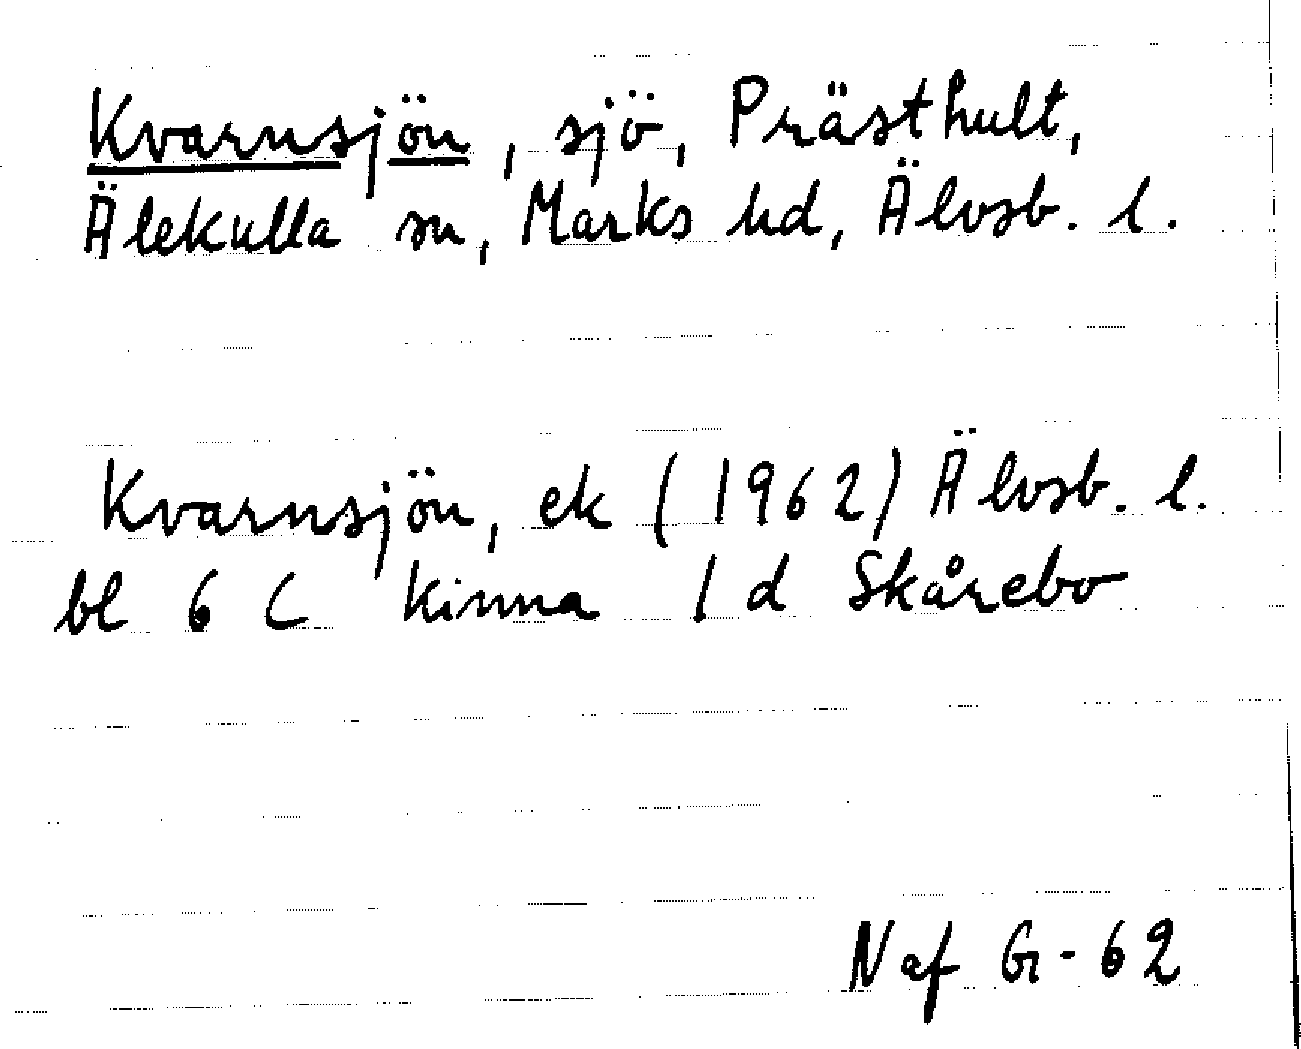 Kvarnsjön, sjö, Prästhult,
Älekulla sn, Marks hd, Älvsb. l.
Kvarnsjön, ek (1962) Älvsb. l.
bl 6 C Kinna 1 d Skårebo
Naf G-62